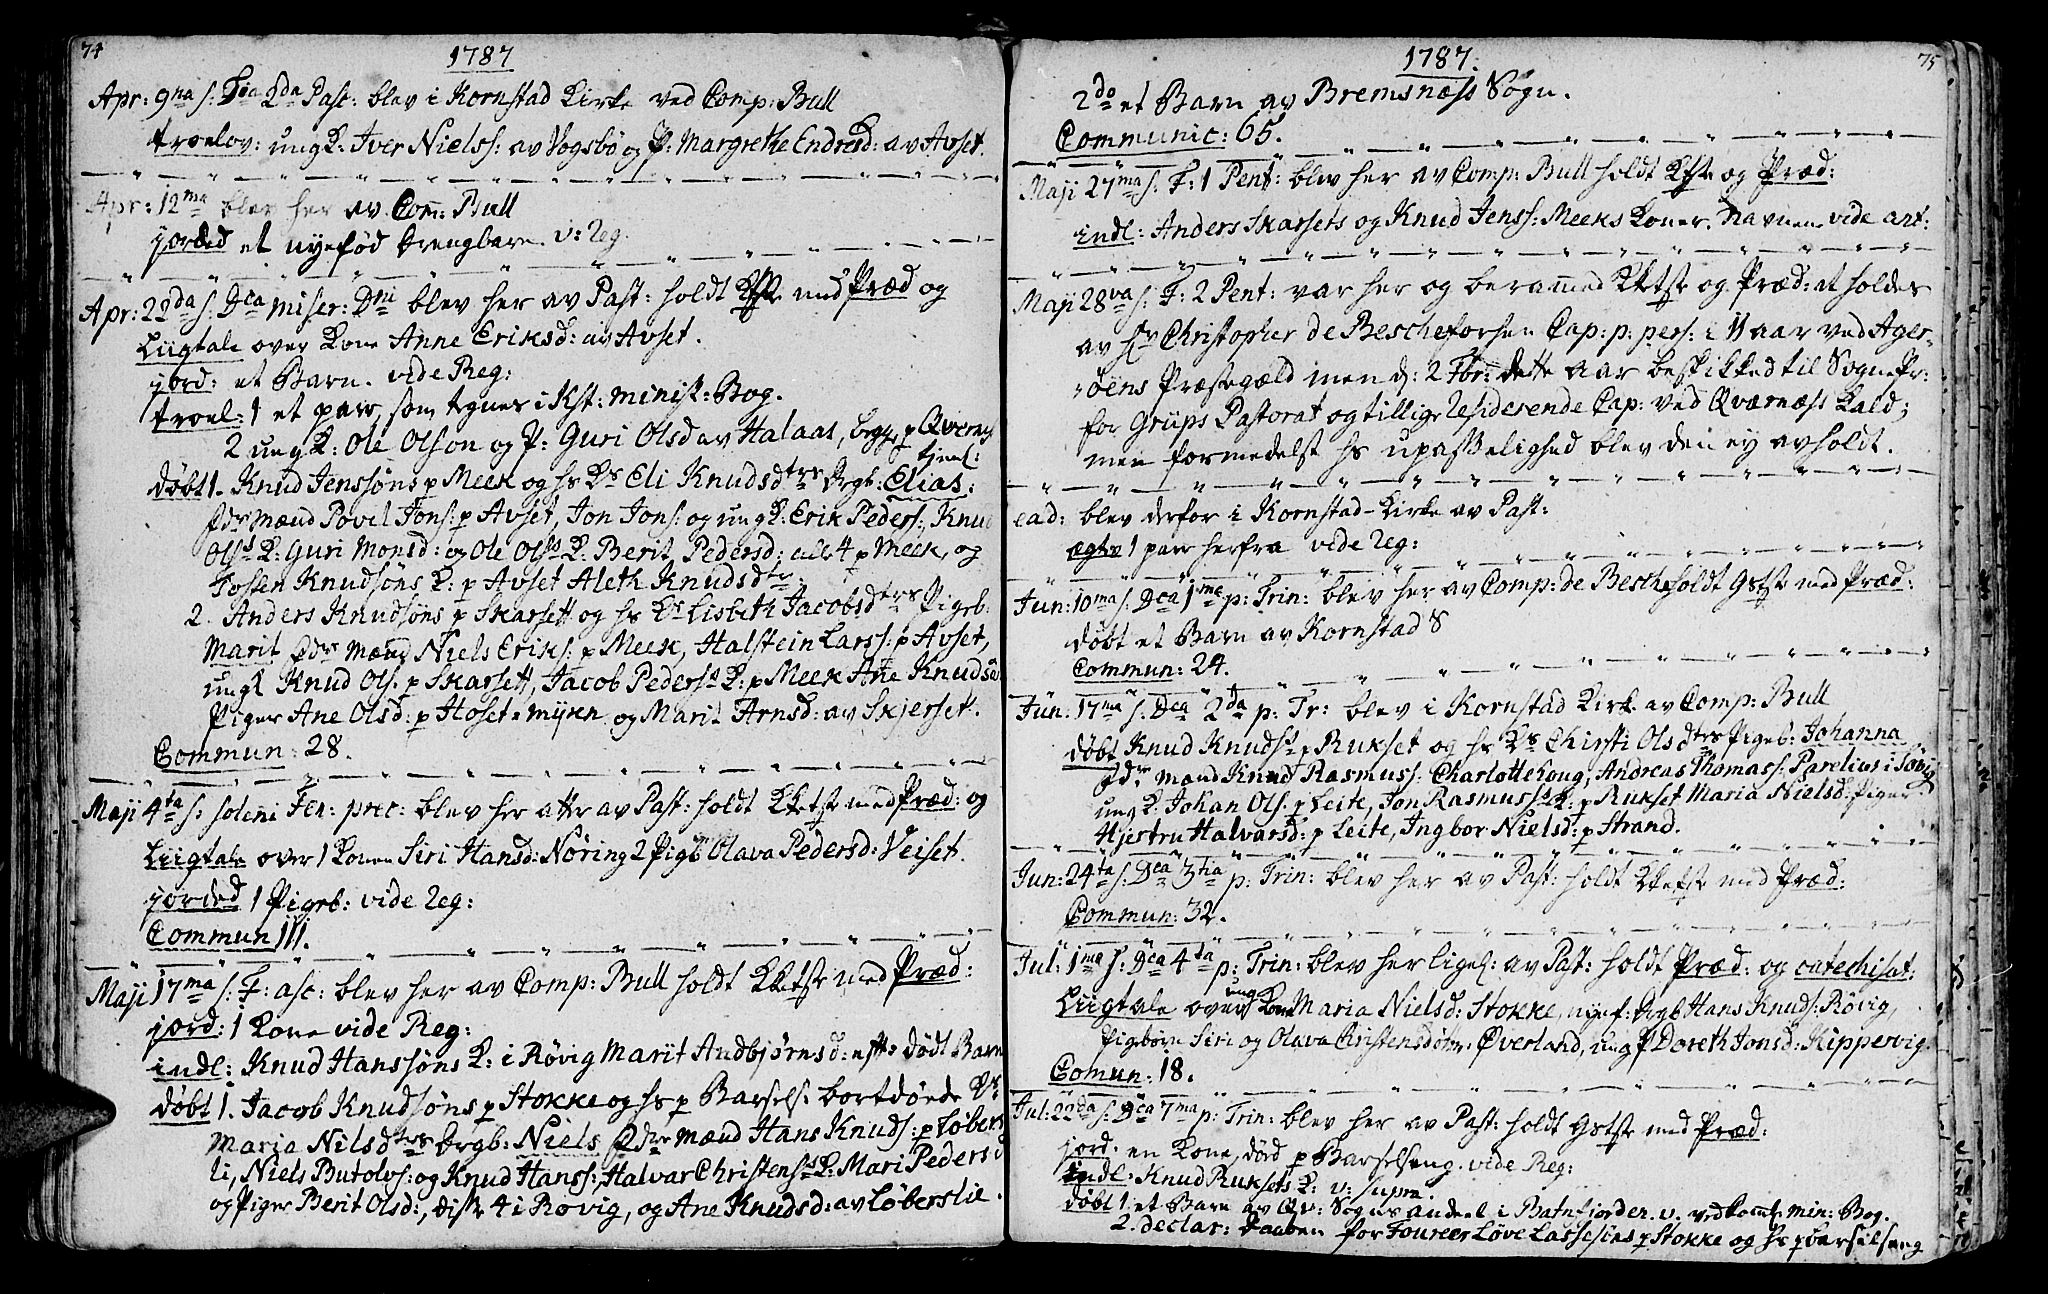 74
1787
Apr: 9na s: Fia 2da Pasc: blev i Kornstad Kirke ved Comp: Bull
troelov: ung K: Iver Niels: av Vogsbø og P: Margrethe Endresd: av Avset.
Apr: 12ma blev her av Com: Bull
jorded et nyefød drengbarn. v: Reg.
Apr: 22da s: Dca Miser: Dni blev her av Past: holdt med Præd og
Liigtale over Kone Anne Eriksd: av Avset.
jord: et Barn. vide Reg:
troel: 1 et parr som tegnes i Kst: minist: Bog.
2 ung K: Ole Olson og P: Guri Olsd av Halaas, p Qvernes
tjenes:
døbt 1. Knud Jenssøns p Meek og hs Ks Eli Knudsdtrs drgb: Elias:
fdre mænd Povel Jons: p Avset, Jon Jons: og ung K: Erik Peders:, Knud
Olss K: Guri Monsd: og Ole Olss K: Berit Pedersd: alle 4 p Meek, og
Josten Knudsøns K: p Avset Aleth Knudsdtr.
2. Anders Knudsøns p Skarsett og hs Ks Lisbeth Jacobsdtrs Pigeb:
Marit fdre mænd Niels Eriks: p Meek, Halstein Larss: p Avset,
ung K Knud Ols: p Skarsett, Jacob Peders K: p Meek Ane Knudsd
Piger Ane Olsd: p Hoset-myrn og Marit Arnsd: av Skjerset.
Commun: 28.
Maji 4ta s: soleni Fer: prec: blev her atter av Past: holdt Kketste med Præd: og
Liigtale over 1 Konen Siri Hansd: Nøring 2 Pigb Olava Pedersd: Veiset.
jorded 1 Pigeb: vide Reg:
Commun 111.
Maji 17ma s: F: asc: blev her av Comp: Bull holdt Kketste med Præd:
jord: 1 Kone vide Reg:
indl: Knud Hanssøns K: i Røvig Marit Andbjørnsd: efter dødt Barn
døbt 1. Jacob Knudsøns p Stokke og hs p Barsels: bortdøde Ks
Maria Nilsdtrs drgb: Niels fdre mænd Hans Knuds: p Løbers
li, Niels Butolvs: og Knud Hanss:, Halvar Christenss K: Mari Pedersd
og Piger Berit Olsd:, disse 4 i Røvig, og Ane Knudsd: av Løberslie.
1787.
75
2do et Barn av Bremsnæss Sogn.
Communic: 65.
Maji 27ma s: F: 1 Pent: blev her av Comp: Bull holdt og Præd:
indl: Anders Skarsets og Knud Jenss: Meeks Koner. Navnene vide ant:
Maji 28va s: F: 2 Pent: var her og berammed Kketste og Præd: at holdes
av Hr Christopher de Besche forhen Cap: p: pers: i 11 aar ved Ager-
øens Præstegæld men d: 2 Fbr: dette aar beskikked til SognePr:
for Grüps Pastorat og tillige Residerende Cap: ved Qværnæss Kald;
men formedelst hs upasselighed blev den ey avholdt.
ead: blev derfor i Kornstad-Kirke av Past:
ægtev 1 parr herfra vide Reg:
Jun: 10ma s: Dca 1ma p: Trin: blev her av Comp: de Besche holdt Gstste med Præd:
døbt et Barn av Kornstad S
Commun: 24.
Jun: 17ma s: Dca 2da p: Tr: blev i Kornstad Kirke av Comp: Bull
døbt Knud Knuds p Rukset og hs Ks Chirsti Olsdtrs Pigeb: Johanna
fdre mænd Knud Rasmuss: Charlotte Koug, Andreas Thomass: Parelius i Søvig
ung K: Johan Ols: p Leite, Jon Rasmuss K: p Rukset Maria Nielsd: Piger
Hjestru Halvarsd: p Leite, Ingbor Nielsd: p Strand.
Jun: 24ta s: Dca 3tia p: Trin: blev her av Past: holdt Kketste med Præd:
Commun: 32.
Jul: 1ma s: Dca 4ta p: Trin: blev her liges: av Past: holdt Præd: og catechisat:
Liigtale over ung Kone Maria Nielsd: Stokke, nyef: drgb Hans Knuds: Røvig,
Pigbørn Siri og Olava Christensdøtre, Øverland, ung P Doreth Jonsd: Kippervig
Comun: 18.
Jul: 22da s: Dca 7ma p: Trin: blev her av Past: holdt Gstste med Præd:
jord: en Kone, død p Barselseng. vide Reg:
indl: Knud Ruksets K: v: supra.
døbt 1: et Barn av Qv: Sogns andeel i Batnfjorden. v. ved min: Bog.
2. declar: Daaben for Foureer Løve Lassesøns p Stokke og hs p barselseng